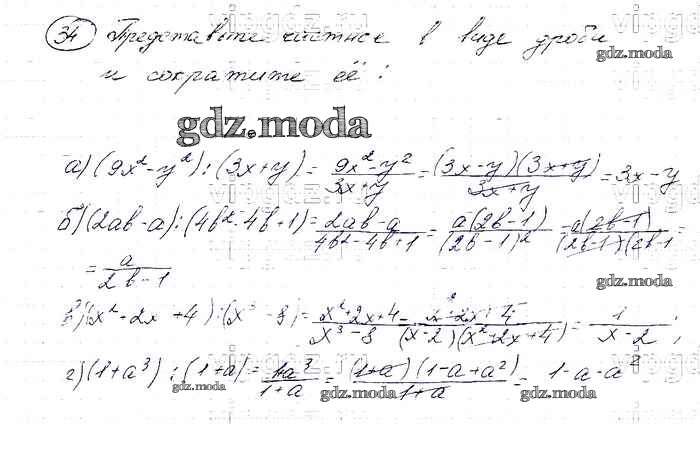 34 Представьте частное в виде дроби
и сократите её:
gdz.moda
gdz.moda
а) (9x² - y²) : (3x + y) = 9x² - y² / 3x + y = (3x - y)(3x + y) / 3x + y = 3x - y
б) (2ab - a) : (4b² - 4b + 1) = 2ab - a / 4b² - 4b + 1 = a(2b - 1) / (2b - 1)² = a(2b - 1) / (2b - 1)(2b - 1 =
= a / 2b - 1
gdz.moda
в) (x² + 2x + 4) : (x³ - 8) = x² + 2x + 4 / x³ - 8 = x² + 2x + 4 / (x - 2)(x² + 2x + 4) = 1 / x - 2 ;
г) (1 + a³) : (1 + a) = 1+a³ / 1 + a = (1 + a)(1 - a + a²) / 1 + a = 1 - a - a²
gdz.moda
gdz.moda
gdz.moda